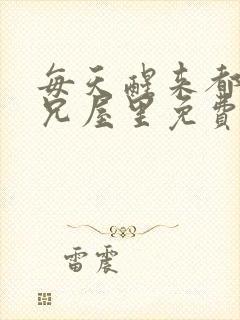 每天醒来都
兄屋里免費
雷震